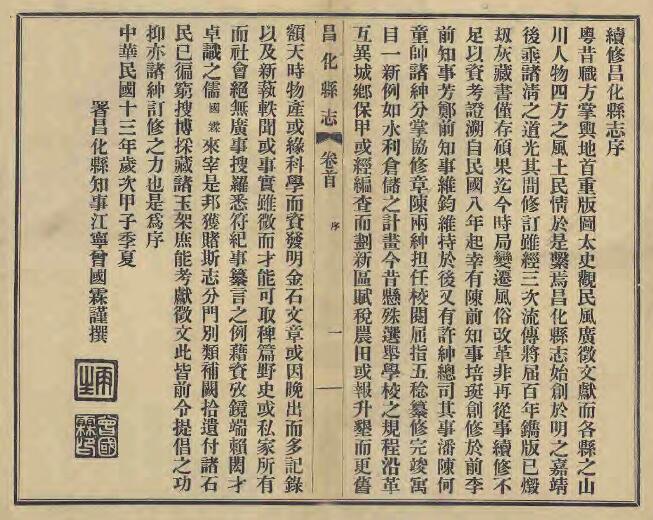 續修昌化縣志序
粵昔職方掌輿地首重版圖太史觀民風廣徵文獻而各縣之山
川人物四方之風土民情於是繫焉昌化縣志始創於明之嘉靖
後乘諸清之道光其間修訂雖經三次流傳將屆百年鐫版已燬
刼灰藏書僅存碩果迄今時局變遷風俗改革非再從事續修不
足以資考證溯自民國八年起幸有陳前知事培珽創修於前李
前知事芳鄭前知事維鈞維持於後又有許紳總司其事潘陳何
童帥諸紳分掌協修章陳兩紳担任校閱屈指五稔纂修完竣寓
目一新例如水利倉儲之計畫今昔懸殊選舉學校之規程沿革
互異城鄉保甲或經編查而劃新區賦稅農田或報升墾而更舊
昌化縣志 卷首 序 一
額天時物產或緣科學而資發明金石文章或因晚出而多記錄
以及新執軼聞或事實雖微而才能可取稗篇野史或私家所有
而社會絕無廣事搜羅悉符紀事纂言之例藉資攷鏡端賴閎才
卓識之儒國霖來宰是邦獲睹斯志分門別類補闕拾遺付諸石
民已徧窮搜博採藏諸玉架庶能考獻徵文此皆前令提倡之功
抑亦諸紳訂修之力也是爲序
中華民國十三年歲次甲子季夏
署昌化縣知事江寧曾國霖謹撰
曾國霖印